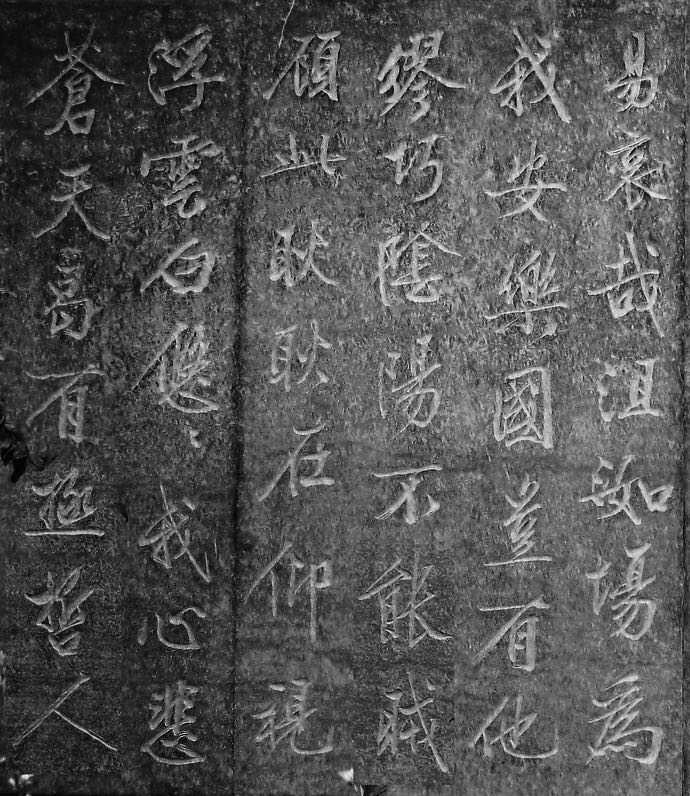 易哀哉沮洳場為
我安樂國豈有他
繆巧陰陽不能賊
顧此耿耿在仰視
浮雲白悠〻我心悲
蒼天曷有極哲人